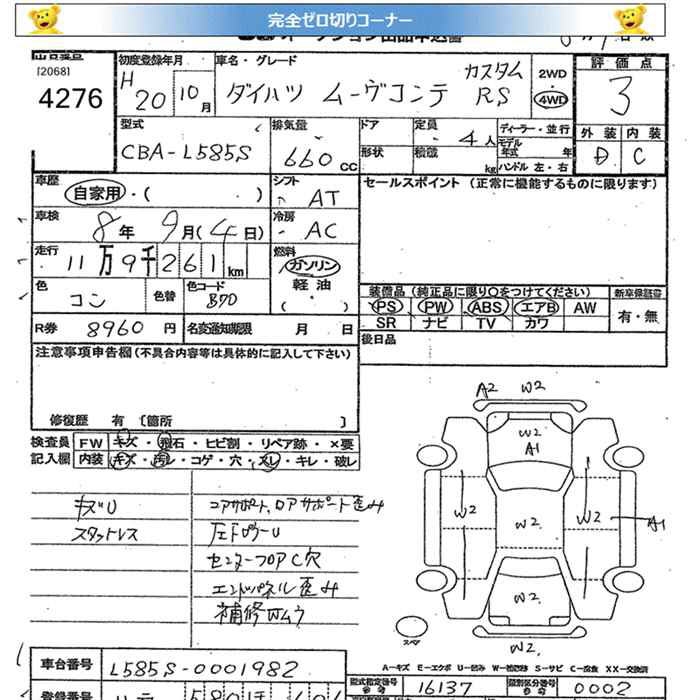 完全ゼロ切りコーナー
オークション出品申込書
出品番号 初度登録年月 車名・グレード 評価点
[2068]
4276 H20 10月 ダイハツ ムーヴコンテ カスタム RS 2WD 4WD 3
型式 排気量 ドア 定員 4人 ディーラー・並行 外装 内装
CBA-L585S 660cc 形状 積載 kg モデル年式 年 ハンドル 左・右 D C
車歴 自家用・( ) シフト AT セールスポイント (正常に機能するものに限ります)
車検 8年 9月(4日) 冷房 AC
走行 11万9千261km 燃料 ガソリン 軽油・( )
色 コン 色替 色コード B70
装備品(純正品に限り○をつけてください) 新車保証書
PS PW ABS エアB AW 有・無
SR ナビ TV カワ
R券 8960円 名変通知期限 月 日 後日品
注意事項申告欄(不具合内容等は具体的に記入して下さい)
修復歴 有 〔箇所 〕
検査員 FW キズ・飛石・ヒビ割・リペア跡・×要
記入欄 内装 キズ・汚レ・コゲ・穴・スレ・キレ・破レ
キズU コアサポート、ロアサポート歪み
スタットレス
センターフロアC穴
エンドパネル歪み
補修Wムラ
A2 W2
W2
A1
W2 W2 W2 A1
W2
W2
スペア
A-キズ E-エクボ U-凹み W-補修跡 S-サビ C-腐食 XX-交換済
車台番号 L585S-0001982 型式指定番号 16137 類別区分番号 0002
登録番号